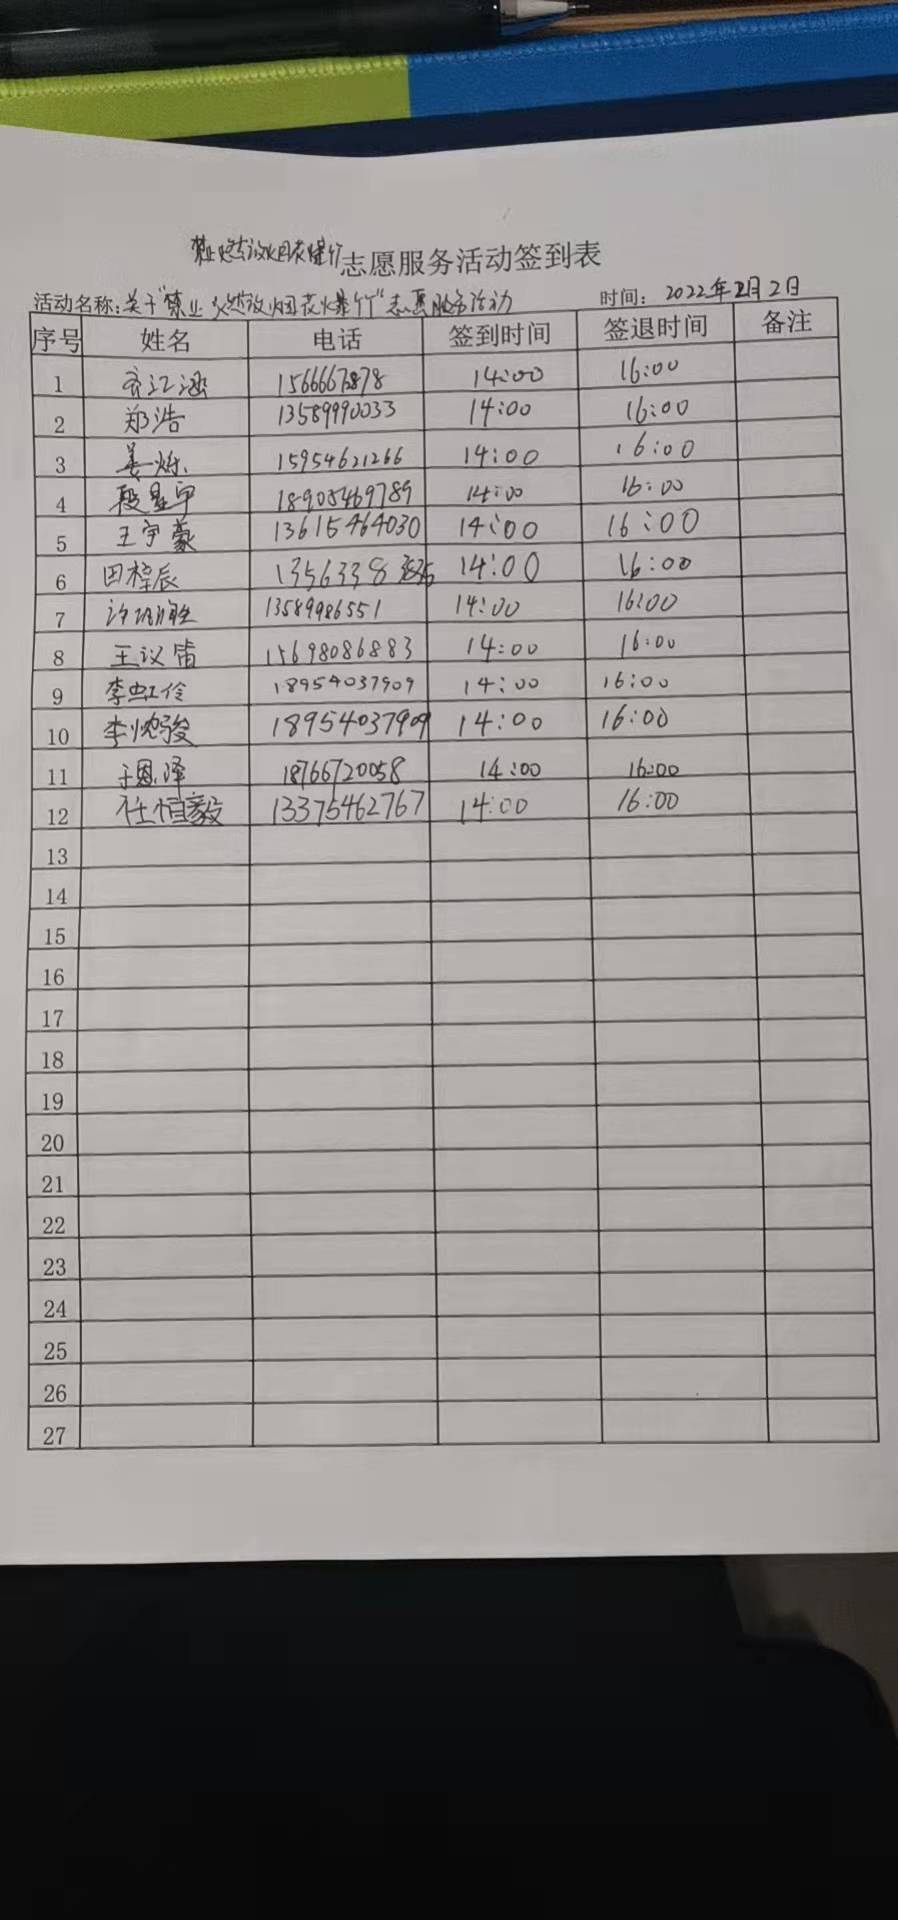 禁止燃放烟花爆竹志愿服务活动签到表
活动名称：关于“禁止燃放烟花爆竹”志愿服务活动 时间：2022年2月2日
序号 姓名 电话 签到时间 签退时间 备注
1 齐江涵 15666678 14:00 16:00
2 郑浩 13589990033 14:00 16:00
3 姜烁 15954621266 14:00 16:00
4 段星宇 18905469789 14:00 16:00
5 王宇豪 13615464030 14:00 16:00
6 田梓辰 14:00 16:00
7 许 13589986551 14:00 16:00
8 王议笛 15698086883 14:00 16:00
9 李虹伶 18954037909 14:00 16:00
10 李 骏 18954037909 14:00 16:00
11 于恩泽 18766720058 14:00 16:00
12 任恒毅 13375462767 14:00 16:00
13
14
15
16
17
18
19
20
21
22
23
24
25
26
27